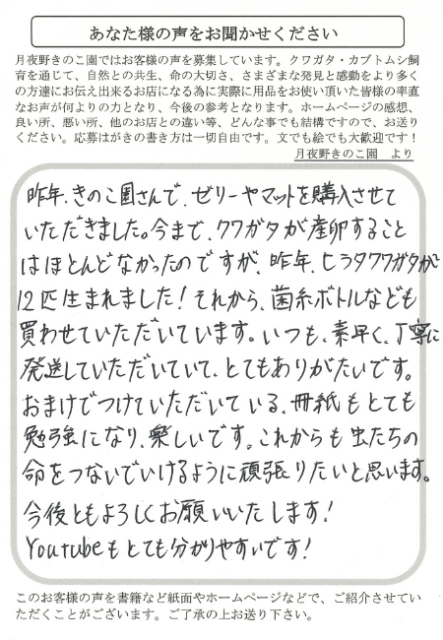 あなた様の声をお聞かせください
月夜野きのこ園ではお客様の声を募集しています。クワガタ・カブトムシ飼
育を通じて、自然との共生、命の大切さ、さまざまな発見と感動をより多く
の方達にお伝え出来るお店になる為に実際に用品をお使い頂いた皆様の率直
なお声が何よりの力となり、今後の参考となります。ホームページの感想、
良い所、悪い所、他のお店との違い等、どんな事でも結構ですので、お送り
ください。応募はがきの書き方は一切自由です。文でも絵でも大歓迎です！
月夜野きのこ園　より
昨年、きのこ園さんで、ゼリーやマットを購入させて
いただきました。今まで、クワガタが産卵すること
はほとんどなかったのですが、昨年、ヒラタクワガタが
12匹生まれました！それから、菌糸ボトルなども
買わせていただいています。いつも、素早く、丁寧に
発送していただいていて、とてもありがたいです。
おまけでつけていただいている、冊紙もとても
勉強になり、楽しいです。これからも虫たちの
命をつないでいけるように頑張りたいと思います。
今後ともよろしくお願いいたします！
Youtubeもとても分かりやすいです！
このお客様の声を書籍など紙面やホームページなどで、ご紹介させてい
ただくことがございます。ご了承の上お送り下さい。